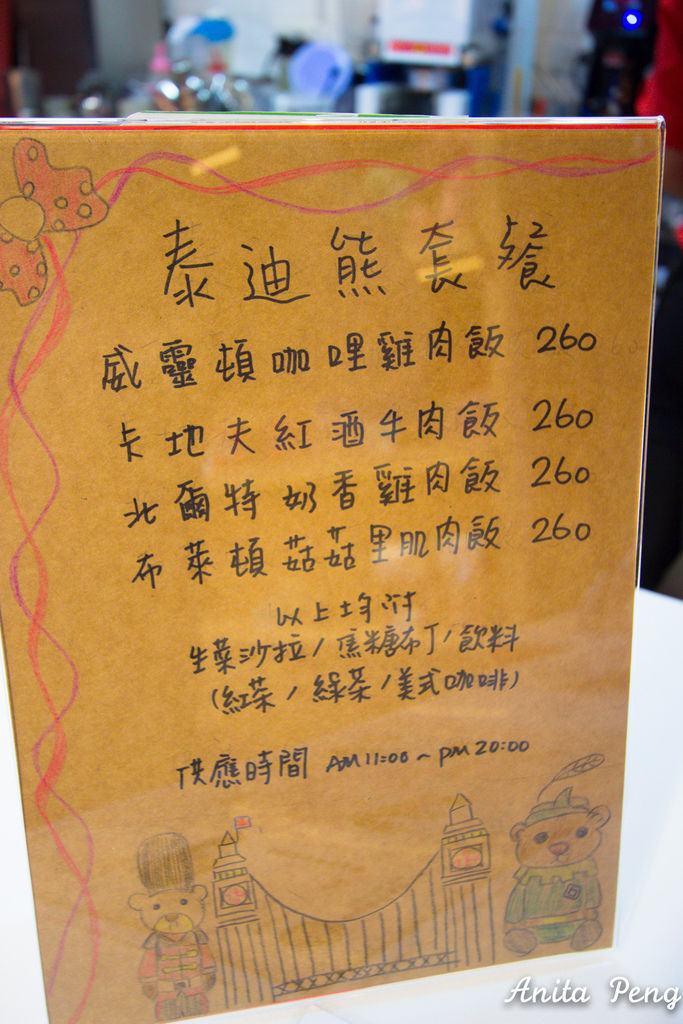 泰迪熊套餐
威靈頓咖哩雞肉飯 260
卡地夫紅酒牛肉飯 260
北爾特奶香雞肉飯 260
布萊頓菇菇里肌肉飯 260
以上均附
生菜沙拉/焦糖布丁/飲料
(紅茶/綠茶/美式咖啡)
供應時間 AM11:00~PM20:00
Anita Peng